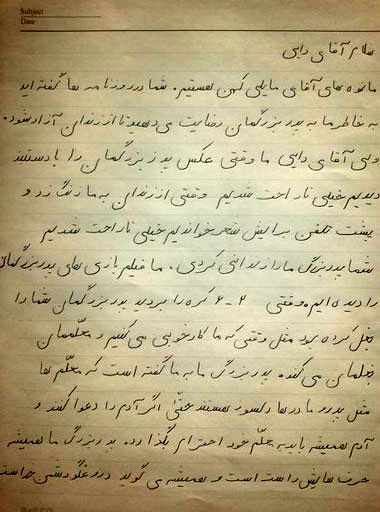 Subject
Date
سلام آقای دایی
ما نوه های آقای مایلی کهن هستیم. شما در روزنامه ها گفته اید
به خاطر ما به پدربزرگمان رضایت می دهید تا از زندان آزاد شود.
ولی آقای دایی ما وقتی عکس پدربزرگمان را با دستبند
دیدیم خیلی ناراحت شدیم وقتی از زندان به ما زنگ زد و
پشت تلفن برایش شعر خواندیم خیلی ناراحت شدیم
شما پدربزرگ ما را زندانی کردی. ما فیلم بازی های پدربزرگمان
را دیده ایم. وقتی ۲-۶ کره را بردید پدربزرگمان شما را
بغل کرده بود مثل وقتی که ما کار خوبی می کنیم و معلّممان
بغلمان می کند. پدربزرگ ما به ما گفته است که معلّم ها
مثل پدر و مادرها دلسوز هستند حتّی اگر آدم را دعوا کنند و
آدم همیشه باید به معلّم خود احترام بگذارد. پدربزرگ ما همیشه
حرف هایش راست است و همیشه می گوید دروغگو دشمن خداست